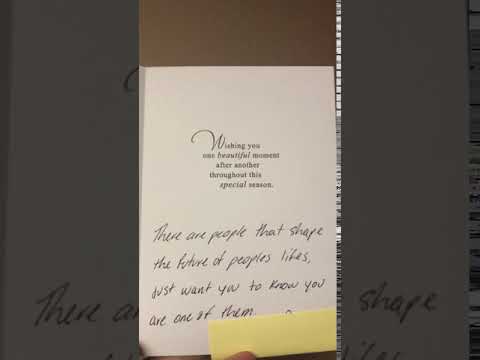 Wishing you
one beautiful moment
after another
throughout this
special season.
There are people that shape
the future of peoples lifes,
Just want you to know you
are one of them